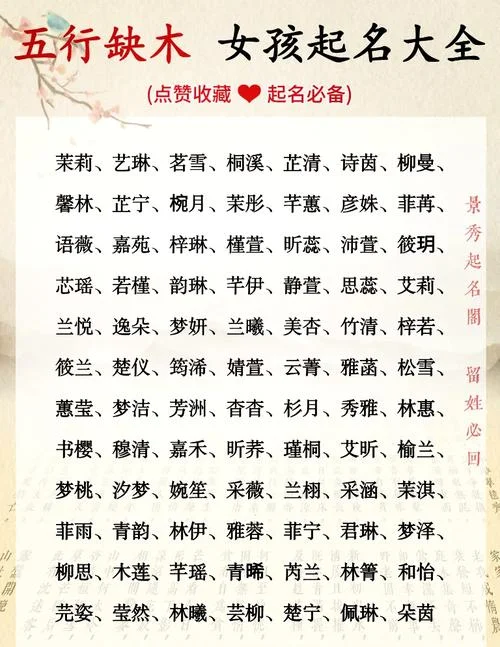 五行缺木 女孩起名大全
(点赞收藏❤起名必备)
茉莉、艺琳、茗雪、桐溪、芷清、诗茵、柳曼、
馨林、芷宁、椀月、茉彤、芊蕙、彦姝、菲苒、
语薇、嘉苑、梓琳、槿萱、昕蕊、沛萱、筱玥、
芯瑶、若槿、韵琳、芊伊、静萱、思蕊、艾莉、
兰悦、逸朵、梦妍、兰曦、美杏、竹清、梓若、
筱兰、楚仪、筠浠、婧萱、云菁、雅菡、松雪、
蕙莹、梦洁、芳洲、杳杏、杉月、秀雅、林惠、
书樱、穆清、嘉禾、昕荞、瑾桐、艾昕、榆兰、
梦桃、汐梦、婉笙、采薇、兰栩、采涵、茉淇、
菲雨、青韵、林伊、雅蓉、菲宁、君琳、梦泽、
柳思、木莲、芊瑶、青晞、芮兰、林箐、和怡、
芜姿、莹然、林曦、芸柳、楚宁、佩琳、朵茵
景秀起名阁 留姓必回